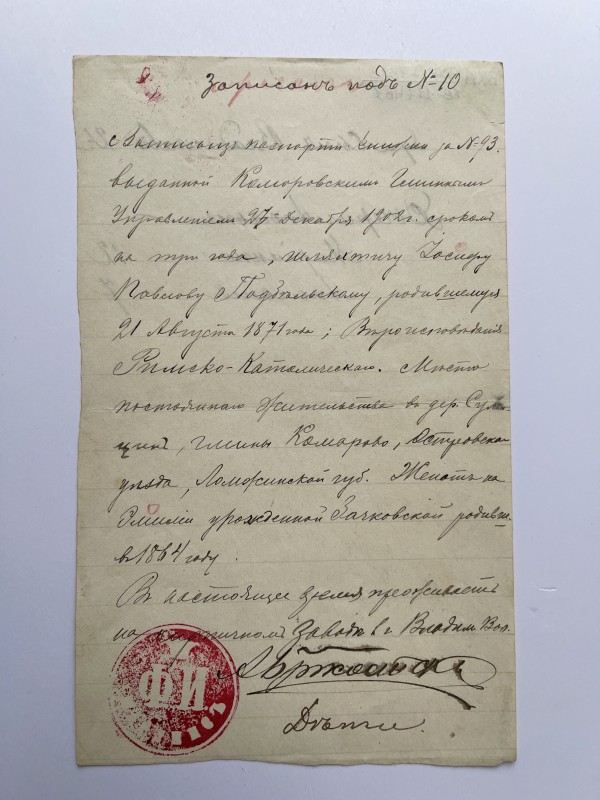 Записанъ подъ № 10
съ паспорта за № 93.
выданной Коморовскимъ Гминнымъ
Управленіемъ 27 декабря 1902 г. срокомъ
на три года, шляхтичу Іосифу
Павлову Подбѣльскому, родившемуся
21 Августа 1871 года; Вѣроисповѣданія
Римско-Католическаго. Мѣсто
постояннаго жительства въ дер.
гмины Комарово, Островскаго
уѣзда, Ломжинской губ. Женатъ на
Эмиліи урожденной родивш.
въ 1864 году.
Въ настоящее время проживаетъ
на заводѣ в г. Владим. Вол.
ФИ
Дѣти.